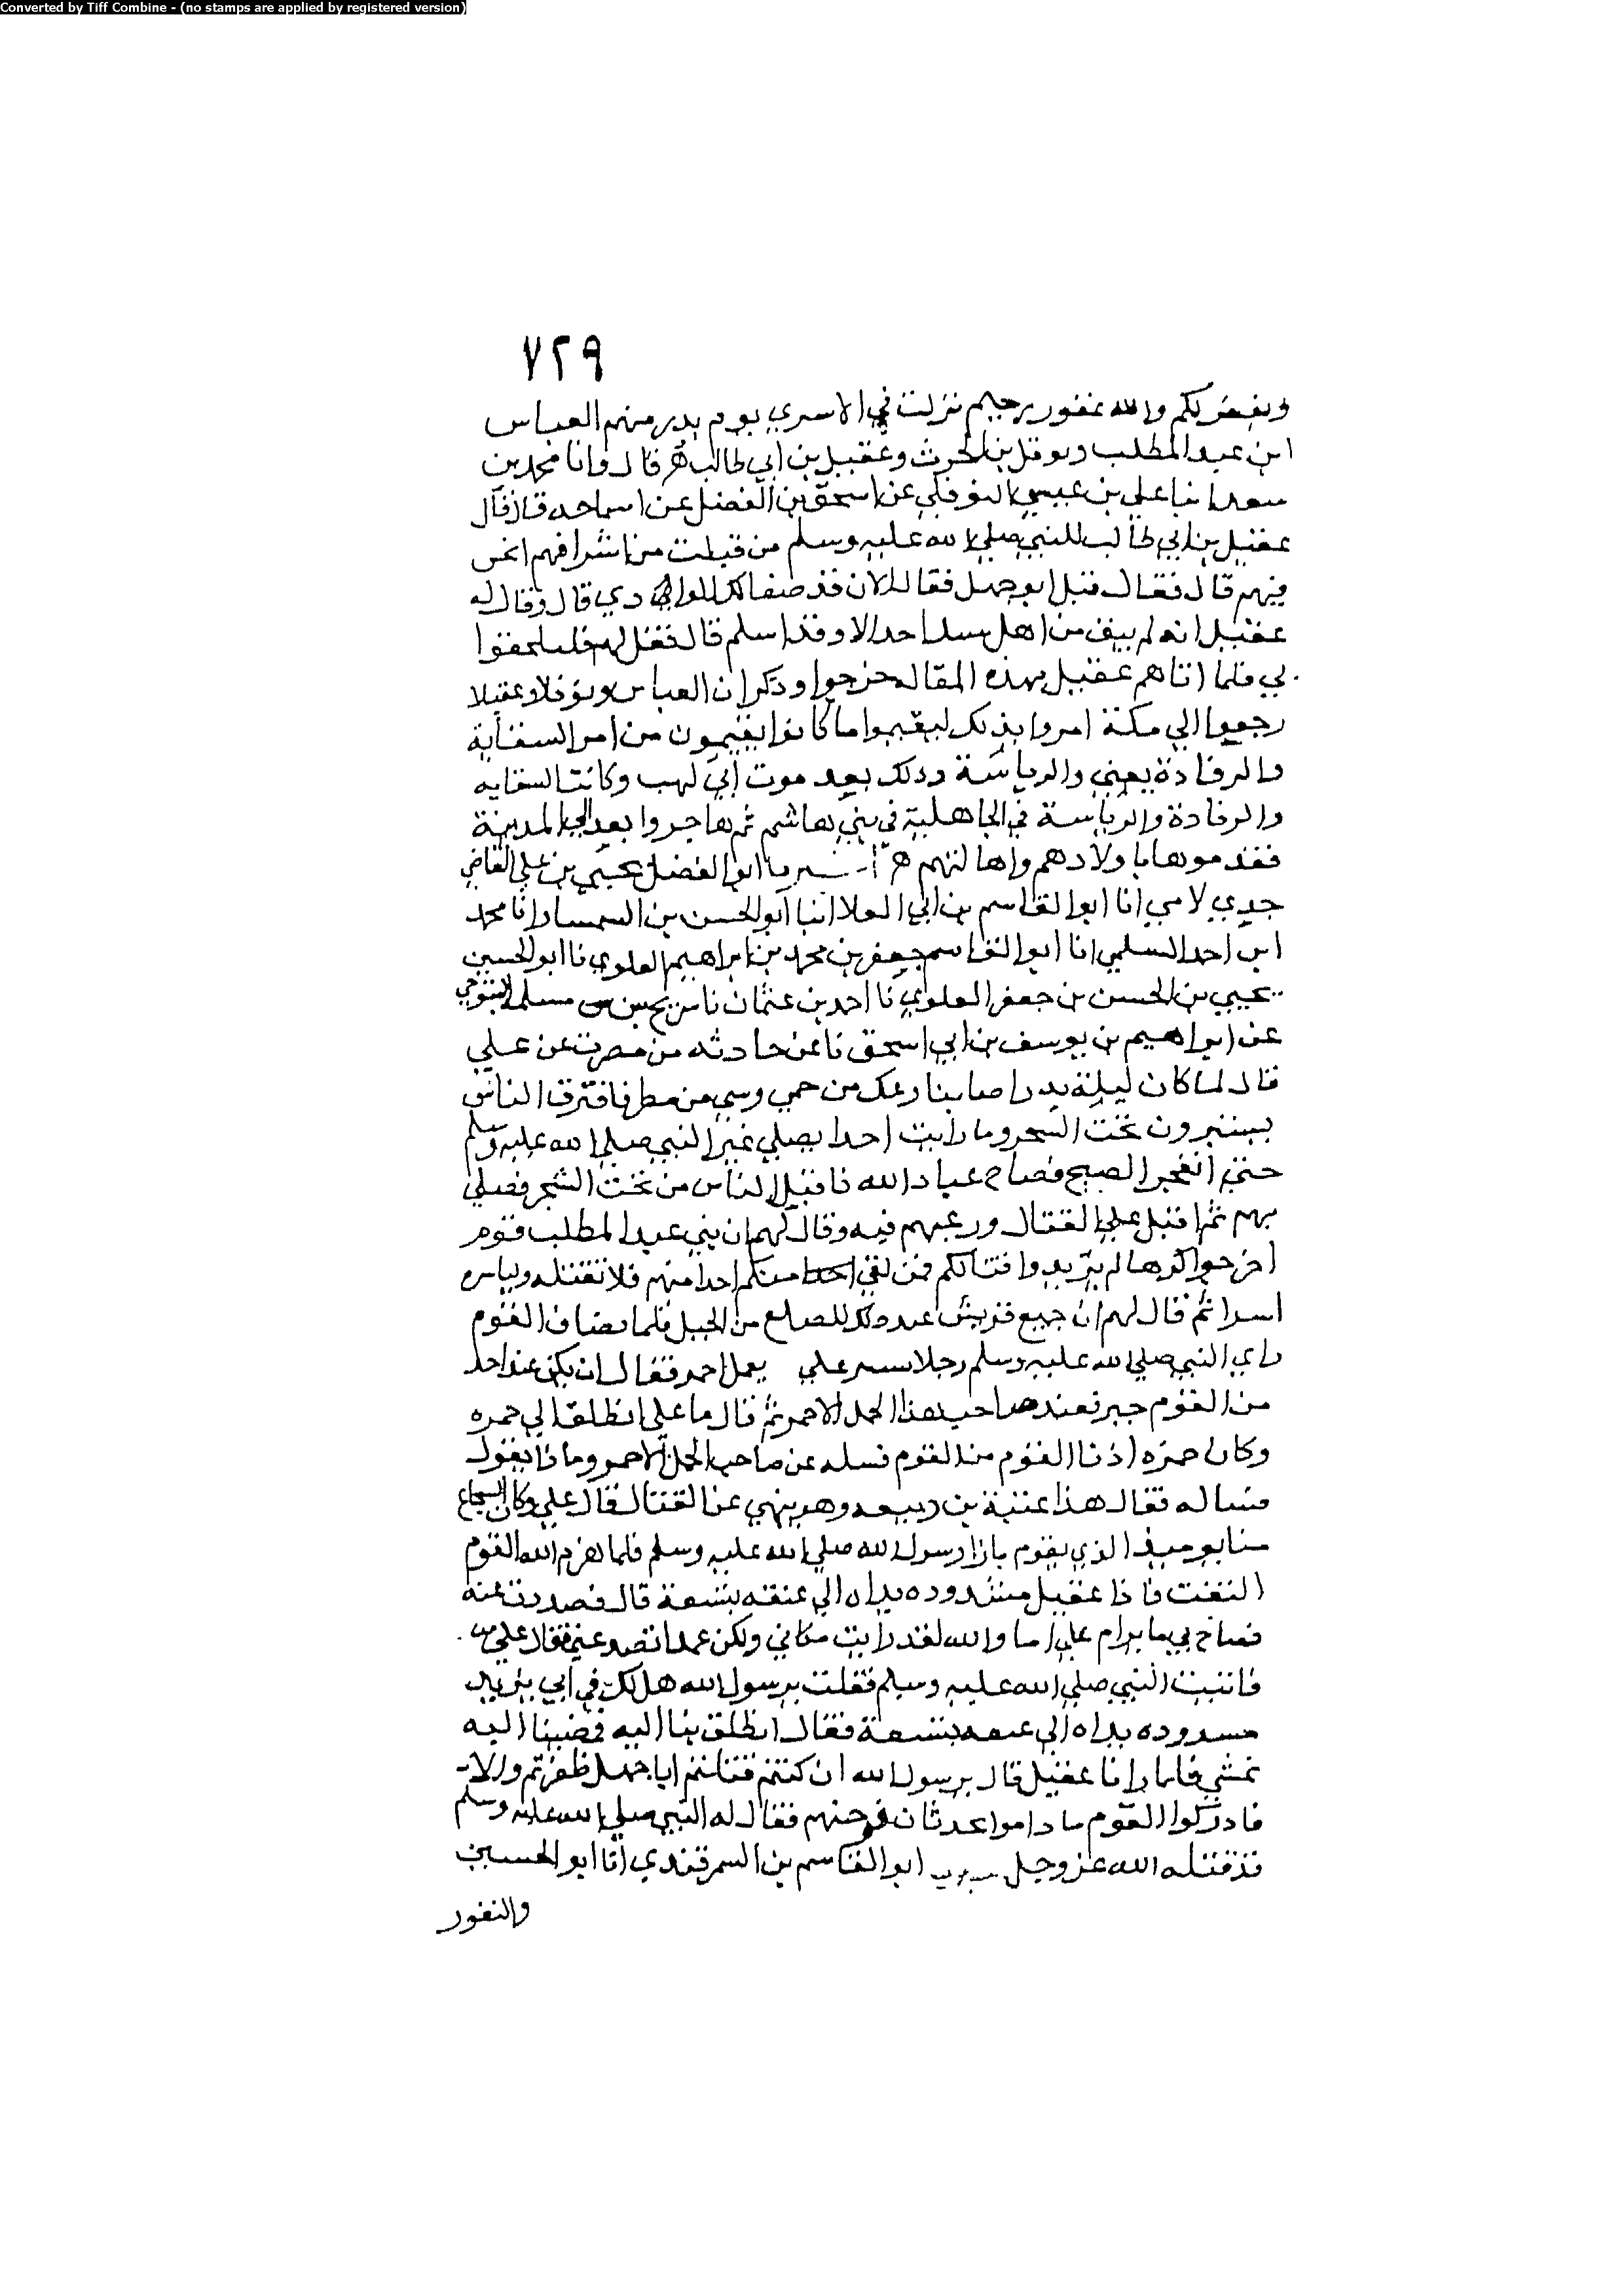 Converted by Tiff Combine - (no stamps are applied by registered version)
٧٢٩
ويغفر لكم والله غفور رحيم نزلت في الاسري يوم بدر منهم العباس
ابن عبد المطلب ونوفل بن الحرث وعقيل بن ابي طالب قال وانا محمد بن
سعد انبا علي بن عيسي النوفلي عن اسحق بن الفضل عن اشياخه قال قال
عقيل بن ابي طالب للنبي صلي الله عليه وسلم من قتلت من اشرافهم انحن
فيهم قال فقال قتل ابو جهل فقال الان قد صفا لك الوادي قال وقال له
عقيل انه لم يبق من اهل بيتك احد الا وقد اسلم قال فقل لهم فليلحقوا
بي فلما اتاهم عقيل بهذه المقاله خرجوا وذكر ان العباس ونوفلا وعقيلا
رجعوا الي مكة امروا بذلك ليقيموا ما كانوا يقيمون من امر السقاية
والرفادة يعني والرياسة وذلك بعد موت ابي لهب وكانت السقايه
والرفادة والرياسة في الجاهلية في بني هاشم ثم هاجروا بعد الي المدينة
فقدموها باولادهم واهاليهم ابو الفضل يحيي بن علي القاضي
جدي لامي انا ابو القاسم بن ابي العلا انبا ابو الحسن بن السمسار انا محمد
ابن احمد السلمي انا ابو القاسم جعفر بن محمد بن ابراهيم العلوي نا ابو الحسين
يحيي بن الحسن بن جعفر العلوي نا احمد بن عثمان نا شريح بن مسلمة التنوخي
عن ابراهيم بن يوسف بن ابي اسحق نا عن حارثه من مضرب عن علي
قال لما كان ليلة بدر اصابنا وعك من حمي وشي من مطر فافترق الناس
يستترون تحت الشجر وما رايت احدا يصلي غير النبي صلي الله عليه وسلم
حتي انفجر الصبح فصاح عباد الله فاقبل الناس من تحت الشجر فصلي
بهم ثم اقبل علي القتال ورغبهم فيه وقال لهم ان بني عبد المطلب قوم
اخرجوا كرها لم يريدوا قتالكم فمن لقي منكم احدا منهم فلا تقتله ولياسره
اسرا ثم قال لهم ان جميع قريش عند ذلك الضلع من الجبل فلما تصاف القوم
راي النبي صلي الله عليه وسلم رجلا يسير علي جمل احمر فقال ان يكن عند احد
من القوم خير فعند صاحب هذا الجمل الاحمر ثم قال يا علي انطلق الي حمزه
وكان حمزه ادنا القوم من القوم فسله عن صاحب الجمل الاحمر وماذا يقول
فساله فقال هذا عتبة بن ربيعه وهو ينهي عن القتال قال علي وكان الشجاع
منا يوميذ الذي يقوم بازا رسول الله صلي الله عليه وسلم فلما هزم الله القوم
التفت فاذا عقيل مشدوده يداه الي عنقه بنسعة قال فصددت عنه
فصاح بي يا برام علي اما والله لقد رايت مكاني ولكن عمدا تصد عني فقال علي
فاتيت النبي صلي الله عليه وسلم فقلت يرسول الله هل لك في ابي يزيد
مشدوده يداه الي عنقه بنسعة فقال انطلق بنا اليه فمضينا اليه
نمشي فلما رانا عقيل قال يرسول الله ان كنتم قتلتم ابا جهل ظفرتم والا
فادركوا القوم ما داموا بحدثان قرحتهم فقال له النبي صلي الله عليه وسلم
قد قتله الله عز وجل ابو القاسم بن السمرقندي انا ابو الحسين
والنقور